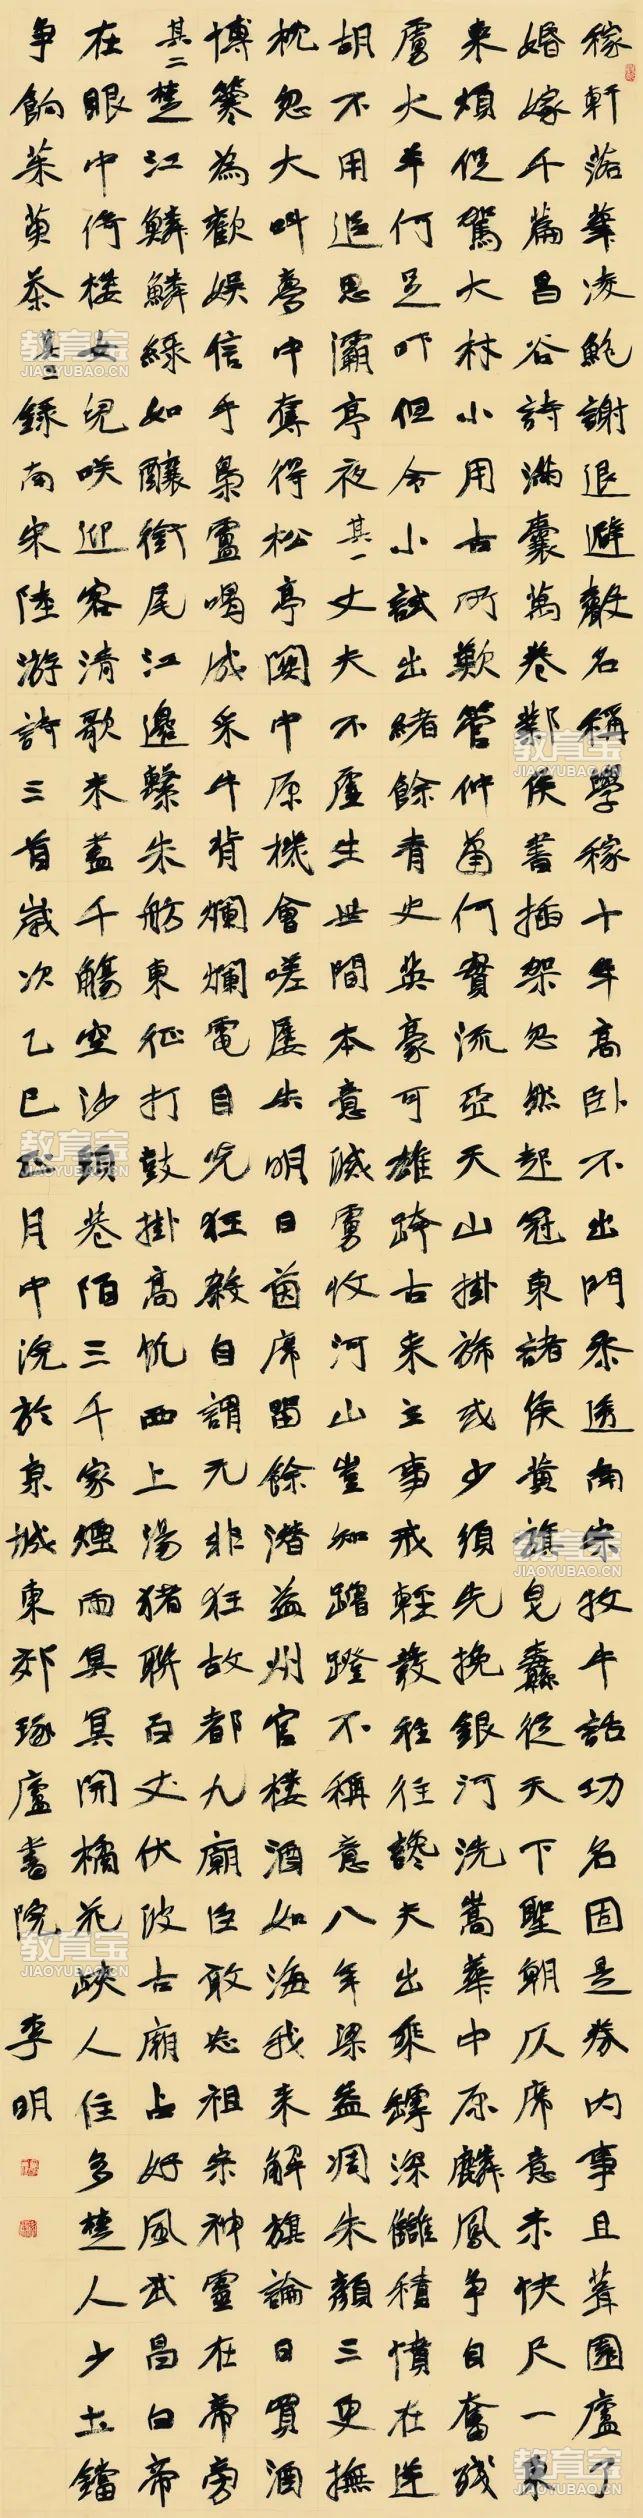 稼軒落筆凌鮑謝退避聲名稱學稼十年高臥不出門參透南宗牧牛話功名固是券內事且葺園廬了
婚嫁千篇昌谷詩滿囊萬卷鄴侯書插架忽然起冠東諸侯黃旗皂纛從天下聖朝仄席意未快尺一東
来煩促駕大材小用古所歎管仲蕭何實流亞天山掛旆或少須先挽銀河洗嵩華中原麟鳳爭自奮殘
虜犬羊何足吓但令小試出緒餘青史英豪可雄跨古來立事戒輕發往往讒夫出乘罅深讎積憤在逆
胡不用追思灞亭夜 其一 丈夫不虛生世間本意滅虜收河山豈知蹭蹬不稱意八年梁益凋朱顏三更撫
枕忽大叫夢中奪得松亭關中原機會嗟屢失明日茵席留餘潸益州官樓酒如海我來解旗論日買酒
博簺為歡娛信手梟盧喝成采牛背爛爛電目光狂殺自謂元非狂故都九廟臣敢忘祖宗神靈在帝旁
其二 楚江鱗鱗綠如釀銜尾江邊繫朱舫東征打鼓掛高帆西上湯豬聯百丈伏波古廟占好風武昌白帝
在眼中倚樓女兒咲迎客清歌未盡千觴空沙頭巷陌三千家煙雨冥冥開橘花峽人住多楚人少土鐺
爭餉茱萸茶 其三 錄南宋陸游詩三首歲次乙巳正月中浣於京城東郊琢廬書院 李明
教育宝
JIAOYUBAO.CN
教育宝
JIAOYUBAO.CN
教育宝
JIAOYUBAO.CN
教育宝
JIAOYUBAO.CN
教育宝
JIAOYUBAO.CN